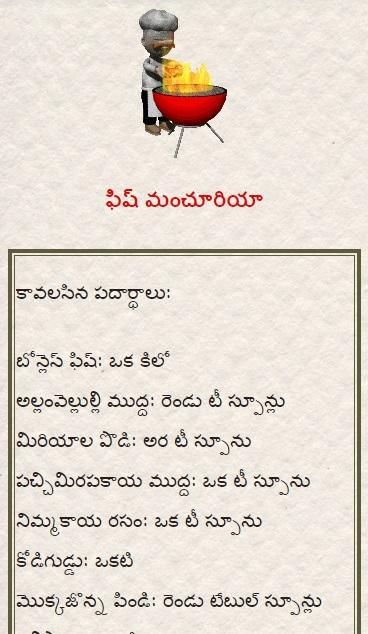 ఫిష్ మంచూరియా
కావలసిన పదార్థాలు:
బోన్లెస్ ఫిష్: ఒక కిలో
అల్లంవెల్లుల్లి ముద్ద: రెండు టీ స్పూన్లు
మిరియాల పొడి: అర టీ స్పూను
పచ్చిమిరపకాయ ముద్ద: ఒక టీ స్పూను
నిమ్మకాయ రసం: ఒక టీ స్పూను
కోడిగుడ్డు: ఒకటి
మొక్కజొన్న పిండి: రెండు టేబుల్ స్పూన్లు